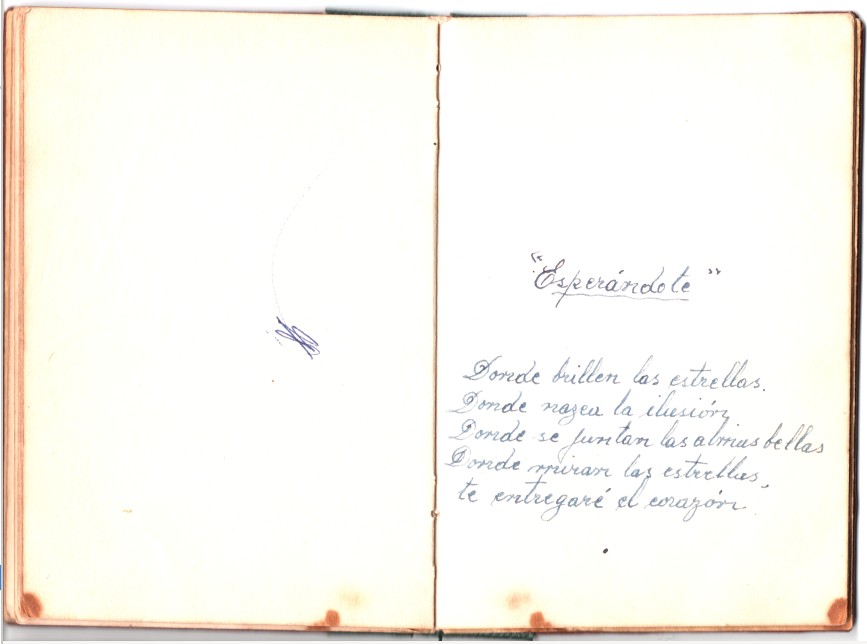 "Esperándote"
Donde brillen las estrellas.
Donde nazca la ilusión,
Donde se juntan las almas bellas
Donde miran las estrellas,
te entregaré el corazón.